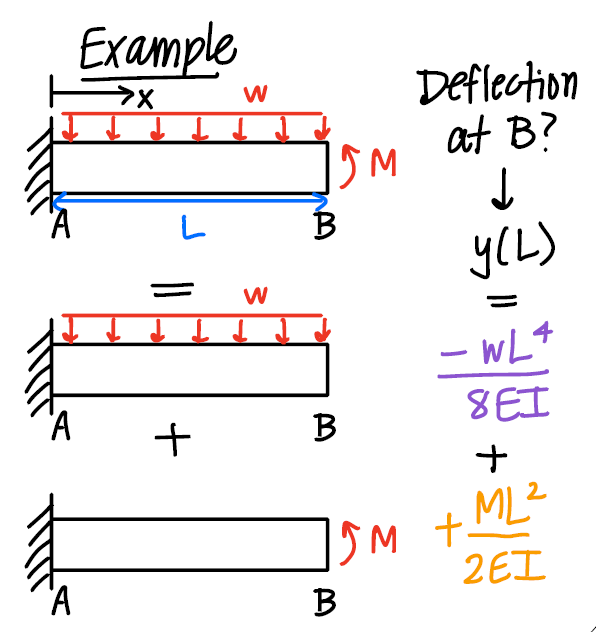 Example
x
w
M
A
L
B
=
w
A
+
B
M
A
B
Deflection
at B?
↓
y(L)
=
-wL⁴
8EI
+
+ML²
2EI